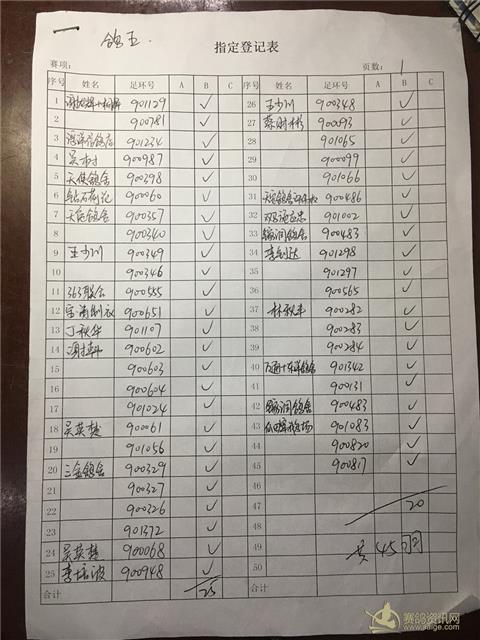 鸽王
指定登记表
赛项： 页数： 1
序号 姓名 足环号 A B C 序号 姓名 足环号 A B C
1 901129 ✓ 26 王少川 900348 ✓
2 900781 ✓ 27 蔡财彬 900093 ✓
3 901234 ✓ 28 901065 ✓
4 900987 ✓ 29 900099 ✓
5 天使鸽舍 900398 ✓ 30 901066 ✓
6 钻石荷花 900060 ✓ 31 900486 ✓
7 天使鸽舍 900357 ✓ 32 901002 ✓
8 900340 ✓ 33 鸽舍 900483 ✓
9 王少川 900349 ✓ 34 901298 ✓
10 900346 ✓ 35 901297 ✓
11 363联合 900555 ✓ 36 900565 ✓
12 900651 ✓ 37 林秋丰 900282 ✓
13 丁秋华 901107 ✓ 38 900283 ✓
14 900602 ✓ 39 900284 ✓
15 900603 ✓ 40 901342 ✓
16 900604 ✓ 41 900131 ✓
17 901024 ✓ 42 鸽舍 900483 ✓
18 吴英楚 900061 ✓ 43 901083 ✓
19 901056 ✓ 44 900820 ✓
20 三金鸽舍 900329 ✓ 45 900817 ✓
21 900327 ✓ 46
22 900326 ✓ 47 20
23 901372 ✓ 48
24 吴英楚 900068 ✓ 49 共45羽
25 李培波 900948 ✓ 50
合计 25 合计
赛鸽资讯网
www.saige.com